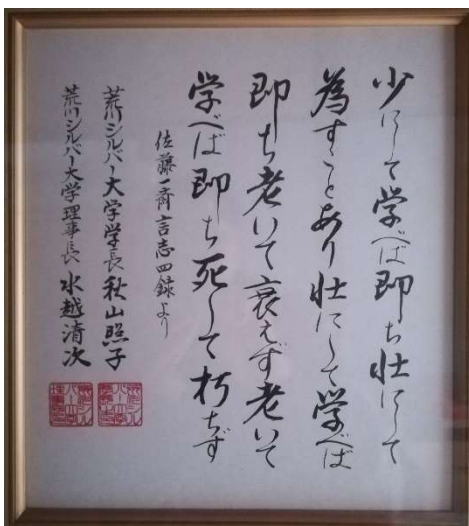 少にして学べば即ち壮にして
為すことあり壮にして学べば
即ち老いて衰えず老いて
学べば即ち死して朽ちず
佐藤一斎言志四録より
荒川シルバー大学学長 秋山照子
荒川シルバー大学理事長 水越清次